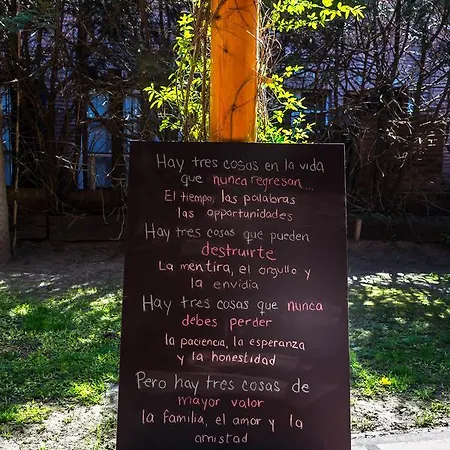 Hay tres cosas en la vida
que nunca regresan...
El tiempo, las palabras
las opportunidades
Hay tres cosas que pueden
destruirte
La mentira, el orgullo y
la envidia
Hay tres cosas que nunca
debes perder
la paciencia, la esperanza
y la honestidad
Pero hay tres cosas de
mayor valor
la familia, el amor y la
amistad